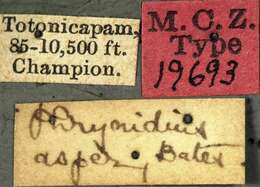 Totonicapam,
85-10,500 ft.
Champion.
M. C. Z.
Type
19693
asper, Bates